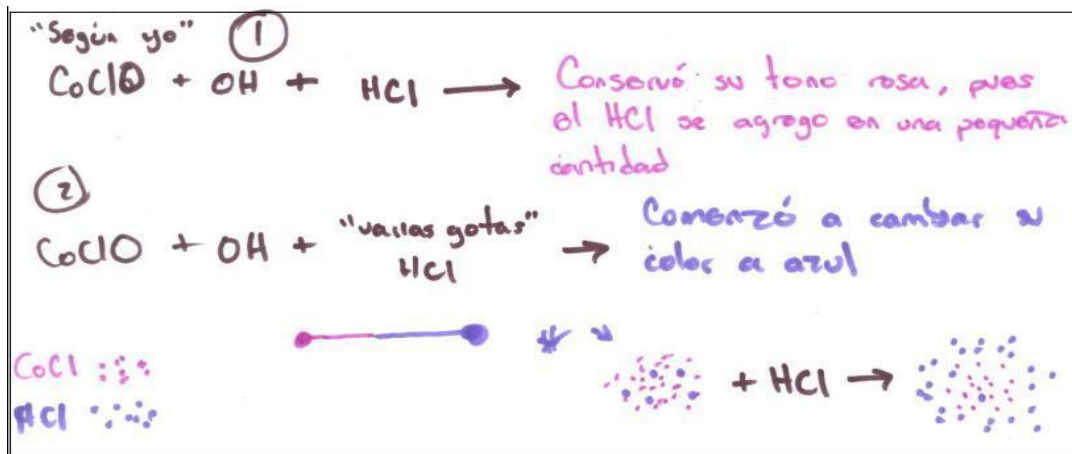 "Según yo" 1
CoClO + OH + HCl → Conservó su tono rosa, pues
el HCl se agrego en una pequeña
cantidad
2
CoClO + OH + "varias gotas" HCl → Comenzó a cambiar su
color a azul
CoCl
HCl
+ HCl →